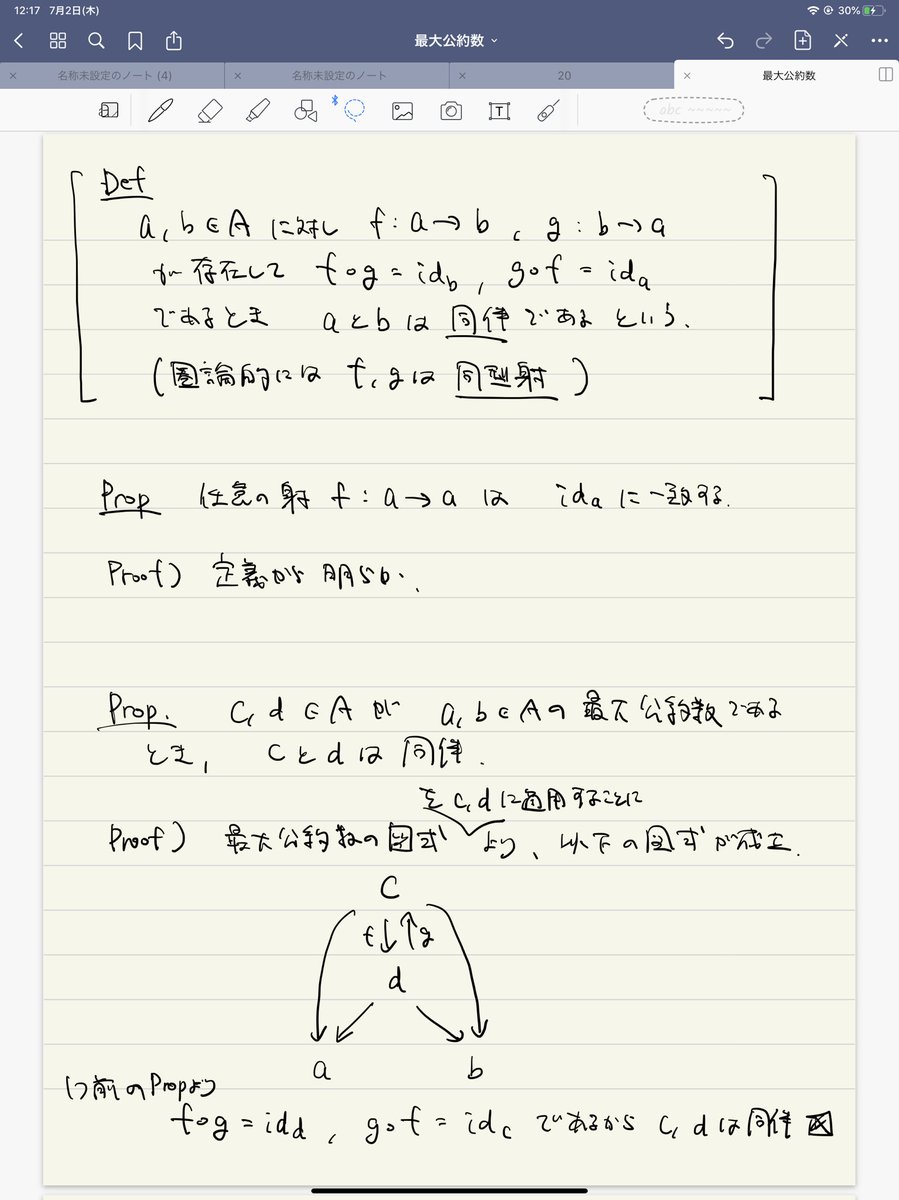 12:17 7月2日(木)
30%
最大公約数
名称未設定のノート (4)
名称未設定のノート
20
最大公約数
T
abc ~~~~~
Def
a, b ∈ A に対し f : a → b , g : b → a
が存在して f∘g = id_b , g∘f = id_a
であるとき a と b は 同伴 である という.
(圏論的には f, g は 同型射 )
Prop 任意の射 f : a → a は id_a に一致する.
Proof) 定義から 明らか.
Prop. c, d ∈ A が a, b ∈ A の 最大公約数である
とき, c と d は 同伴.
を c, d に適用することに
Proof) 最大公約数の図式 より、以下の図式が成立.
c
f ↓↑ g
d
a b
1つ前の Prop より
f∘g = id_d , g∘f = id_c であるから c, d は同伴